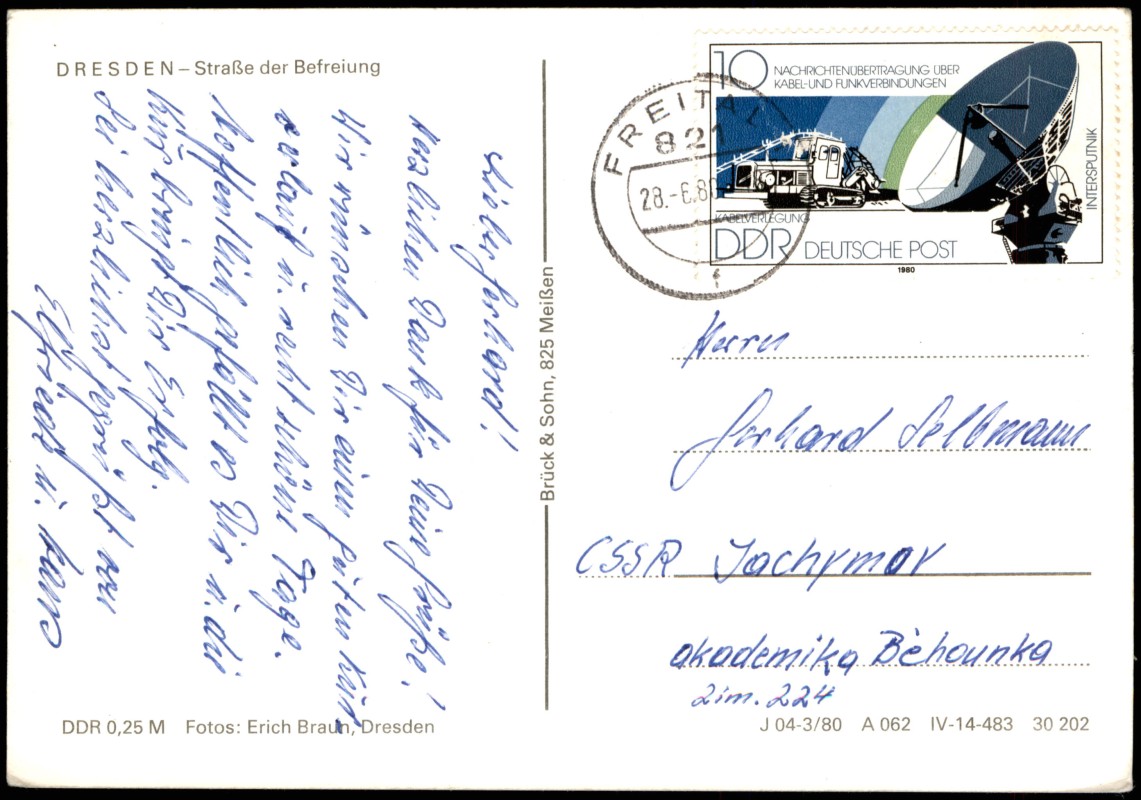 DRESDEN – Straße der Befreiung
Lieber Gerhard!
Herzlichen Dank für Deine Grüße!
Wir wünschen Dir einen guten Kur-
verlauf u. recht schöne Tage.
Hoffentlich gefällt es Dir u. die
Kur bringt Dir Erfolg.
Sei herzlichst gegrüßt von
u. Hans
DDR 0,25 M Fotos: Erich Braun, Dresden
Brück & Sohn, 825 Meißen
FREITAL
821
28.-6.8
f
10
NACHRICHTENÜBERTRAGUNG ÜBER
KABEL- UND FUNKVERBINDUNGEN
INTERSPUTNIK
KABELVERLEGUNG
DDR DEUTSCHE POST
1980
Herrn
Gerhard Sellmann
CSSR Jachymov
akademika Bèhounka
Zim. 224
J 04-3/80 A 062 IV-14-483 30 202